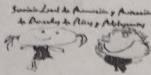 Servicio Local de Promoción y Protección
de Derechos de Niños y Adolescentes